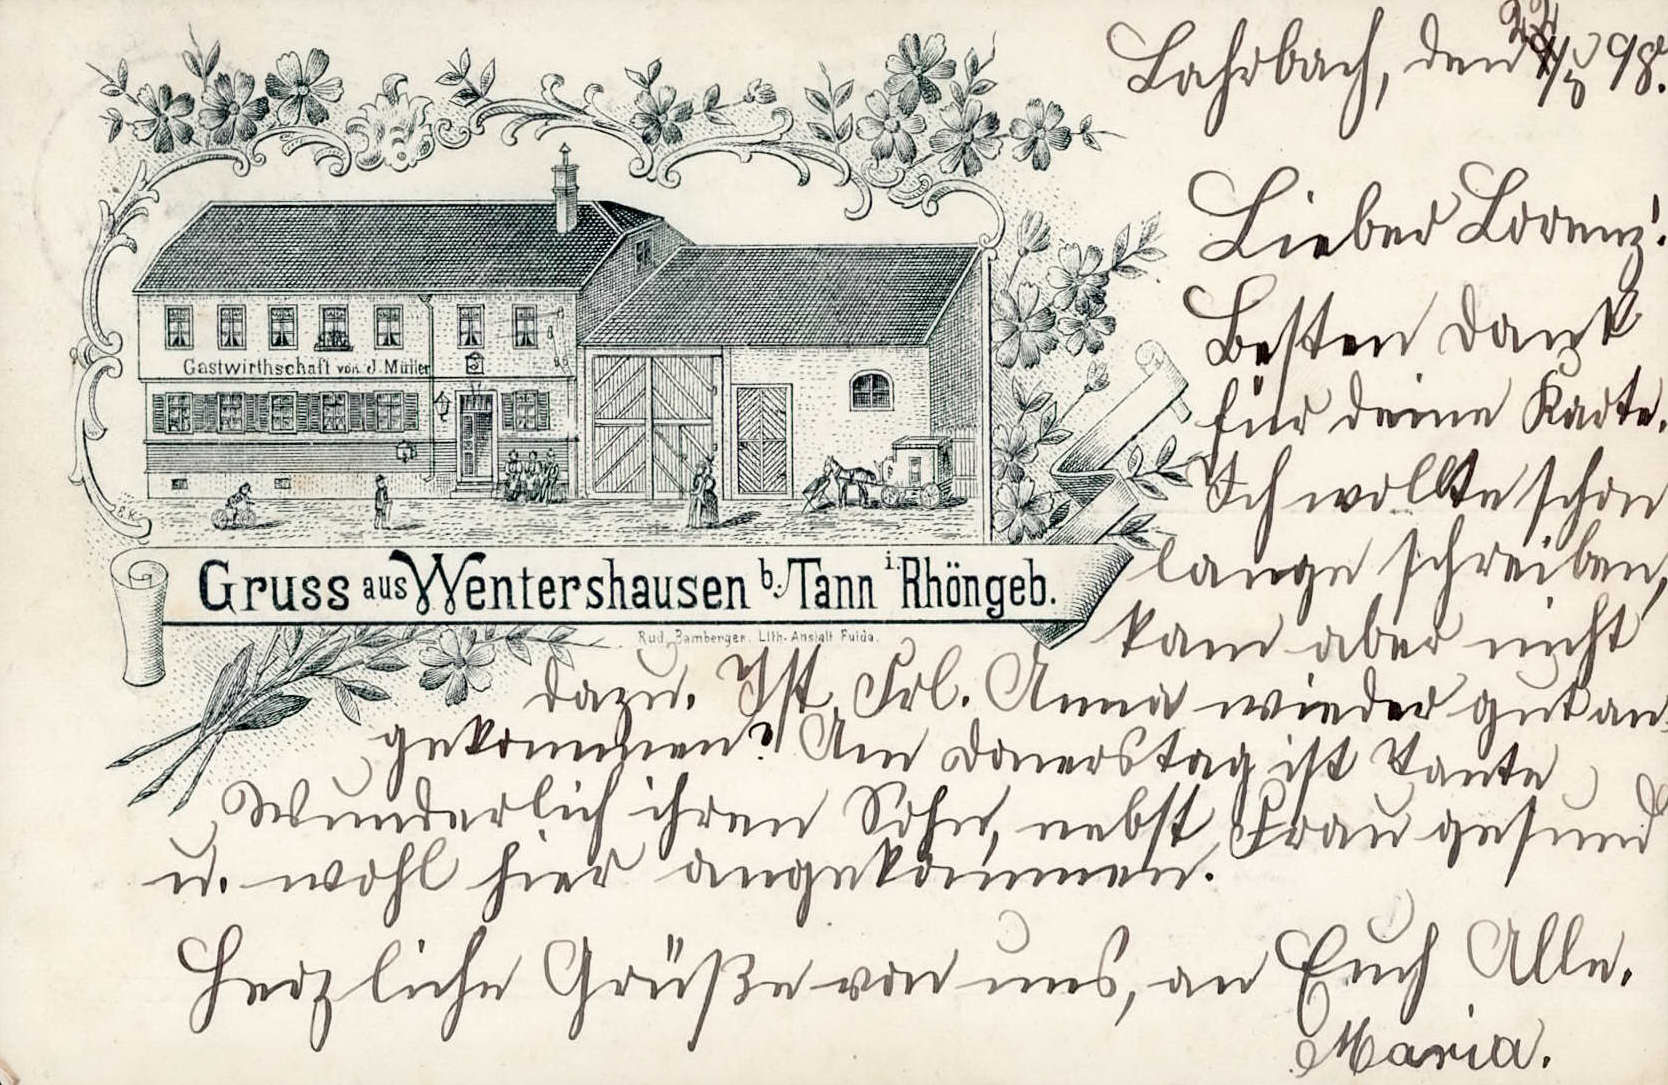 Lahrbach, den 22/X 98.
Lieber Lorenz!
Besten Dank
für deine Karte.
Ich wollte schon
lange schreiben,
kam aber nicht
dazu. Ist Frl. Anna wieder gut an-
gekommen? Am Donerstag ist Tante
Wunderlich ihren Sohn, nebst Frau gesund
u. wohl hier angekommen.
Herzliche Grüße von uns, an Euch Alle.
Maria.
Gastwirthschaft von J. Müller
E.K.
Gruss aus Wentershausen b. Tann i. Rhöngeb.
Rud. Bamberger. Lith. Anstalt Fulda.